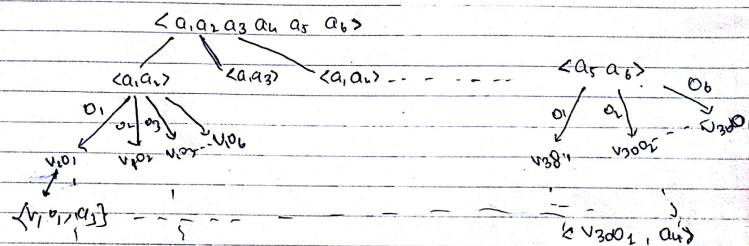 <a₁a₂ a₃ a₄ a₅ a₆>
<a₁a₂> <a₁a₃> <a₁a₄> - - - - - - <a₅ a₆>
o₁ o₂ o₃ o₁ o₂ o₆
v₁o₁ v₁o₂ v₁o₃ --- v₁o₆ v30o₂ - - -
{v₁o₁,a₃} - - - - - - - - - <v30o₁, a₄>